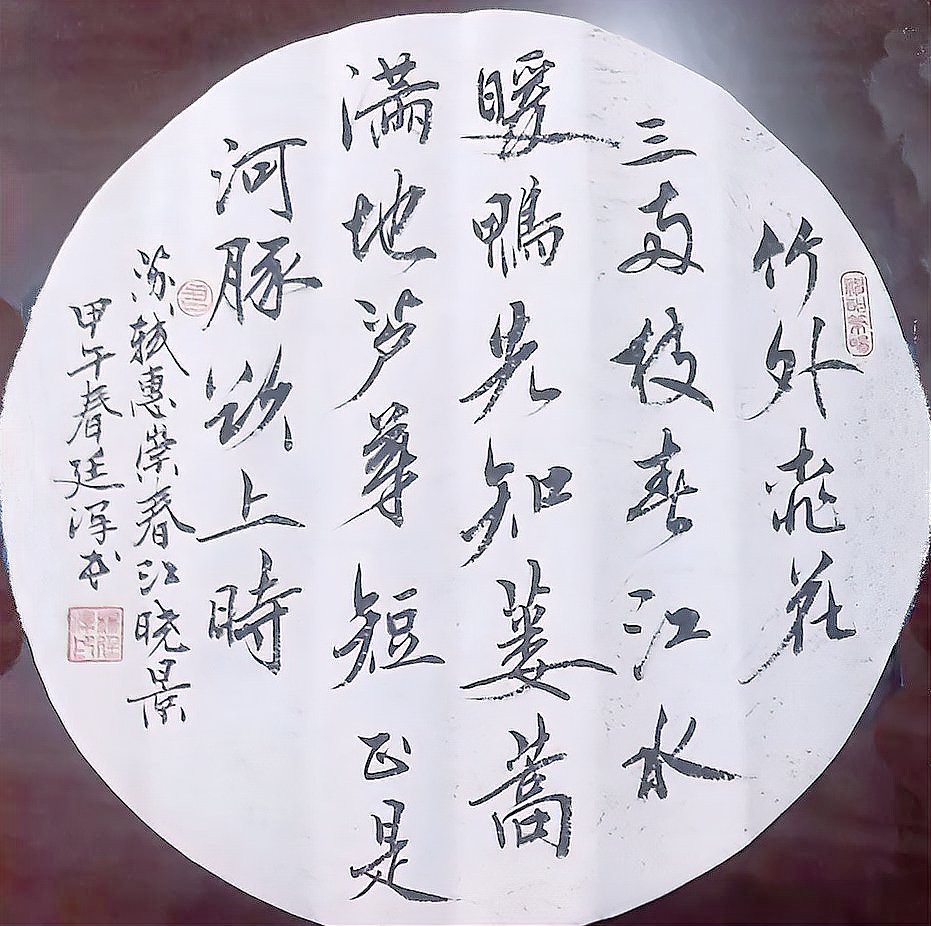 竹外桃花
三两枝春江水
暖鴨先知蒌蒿
满地芦芽短正是
河豚欲上時
苏轼惠崇春江晓景
甲午春廷书